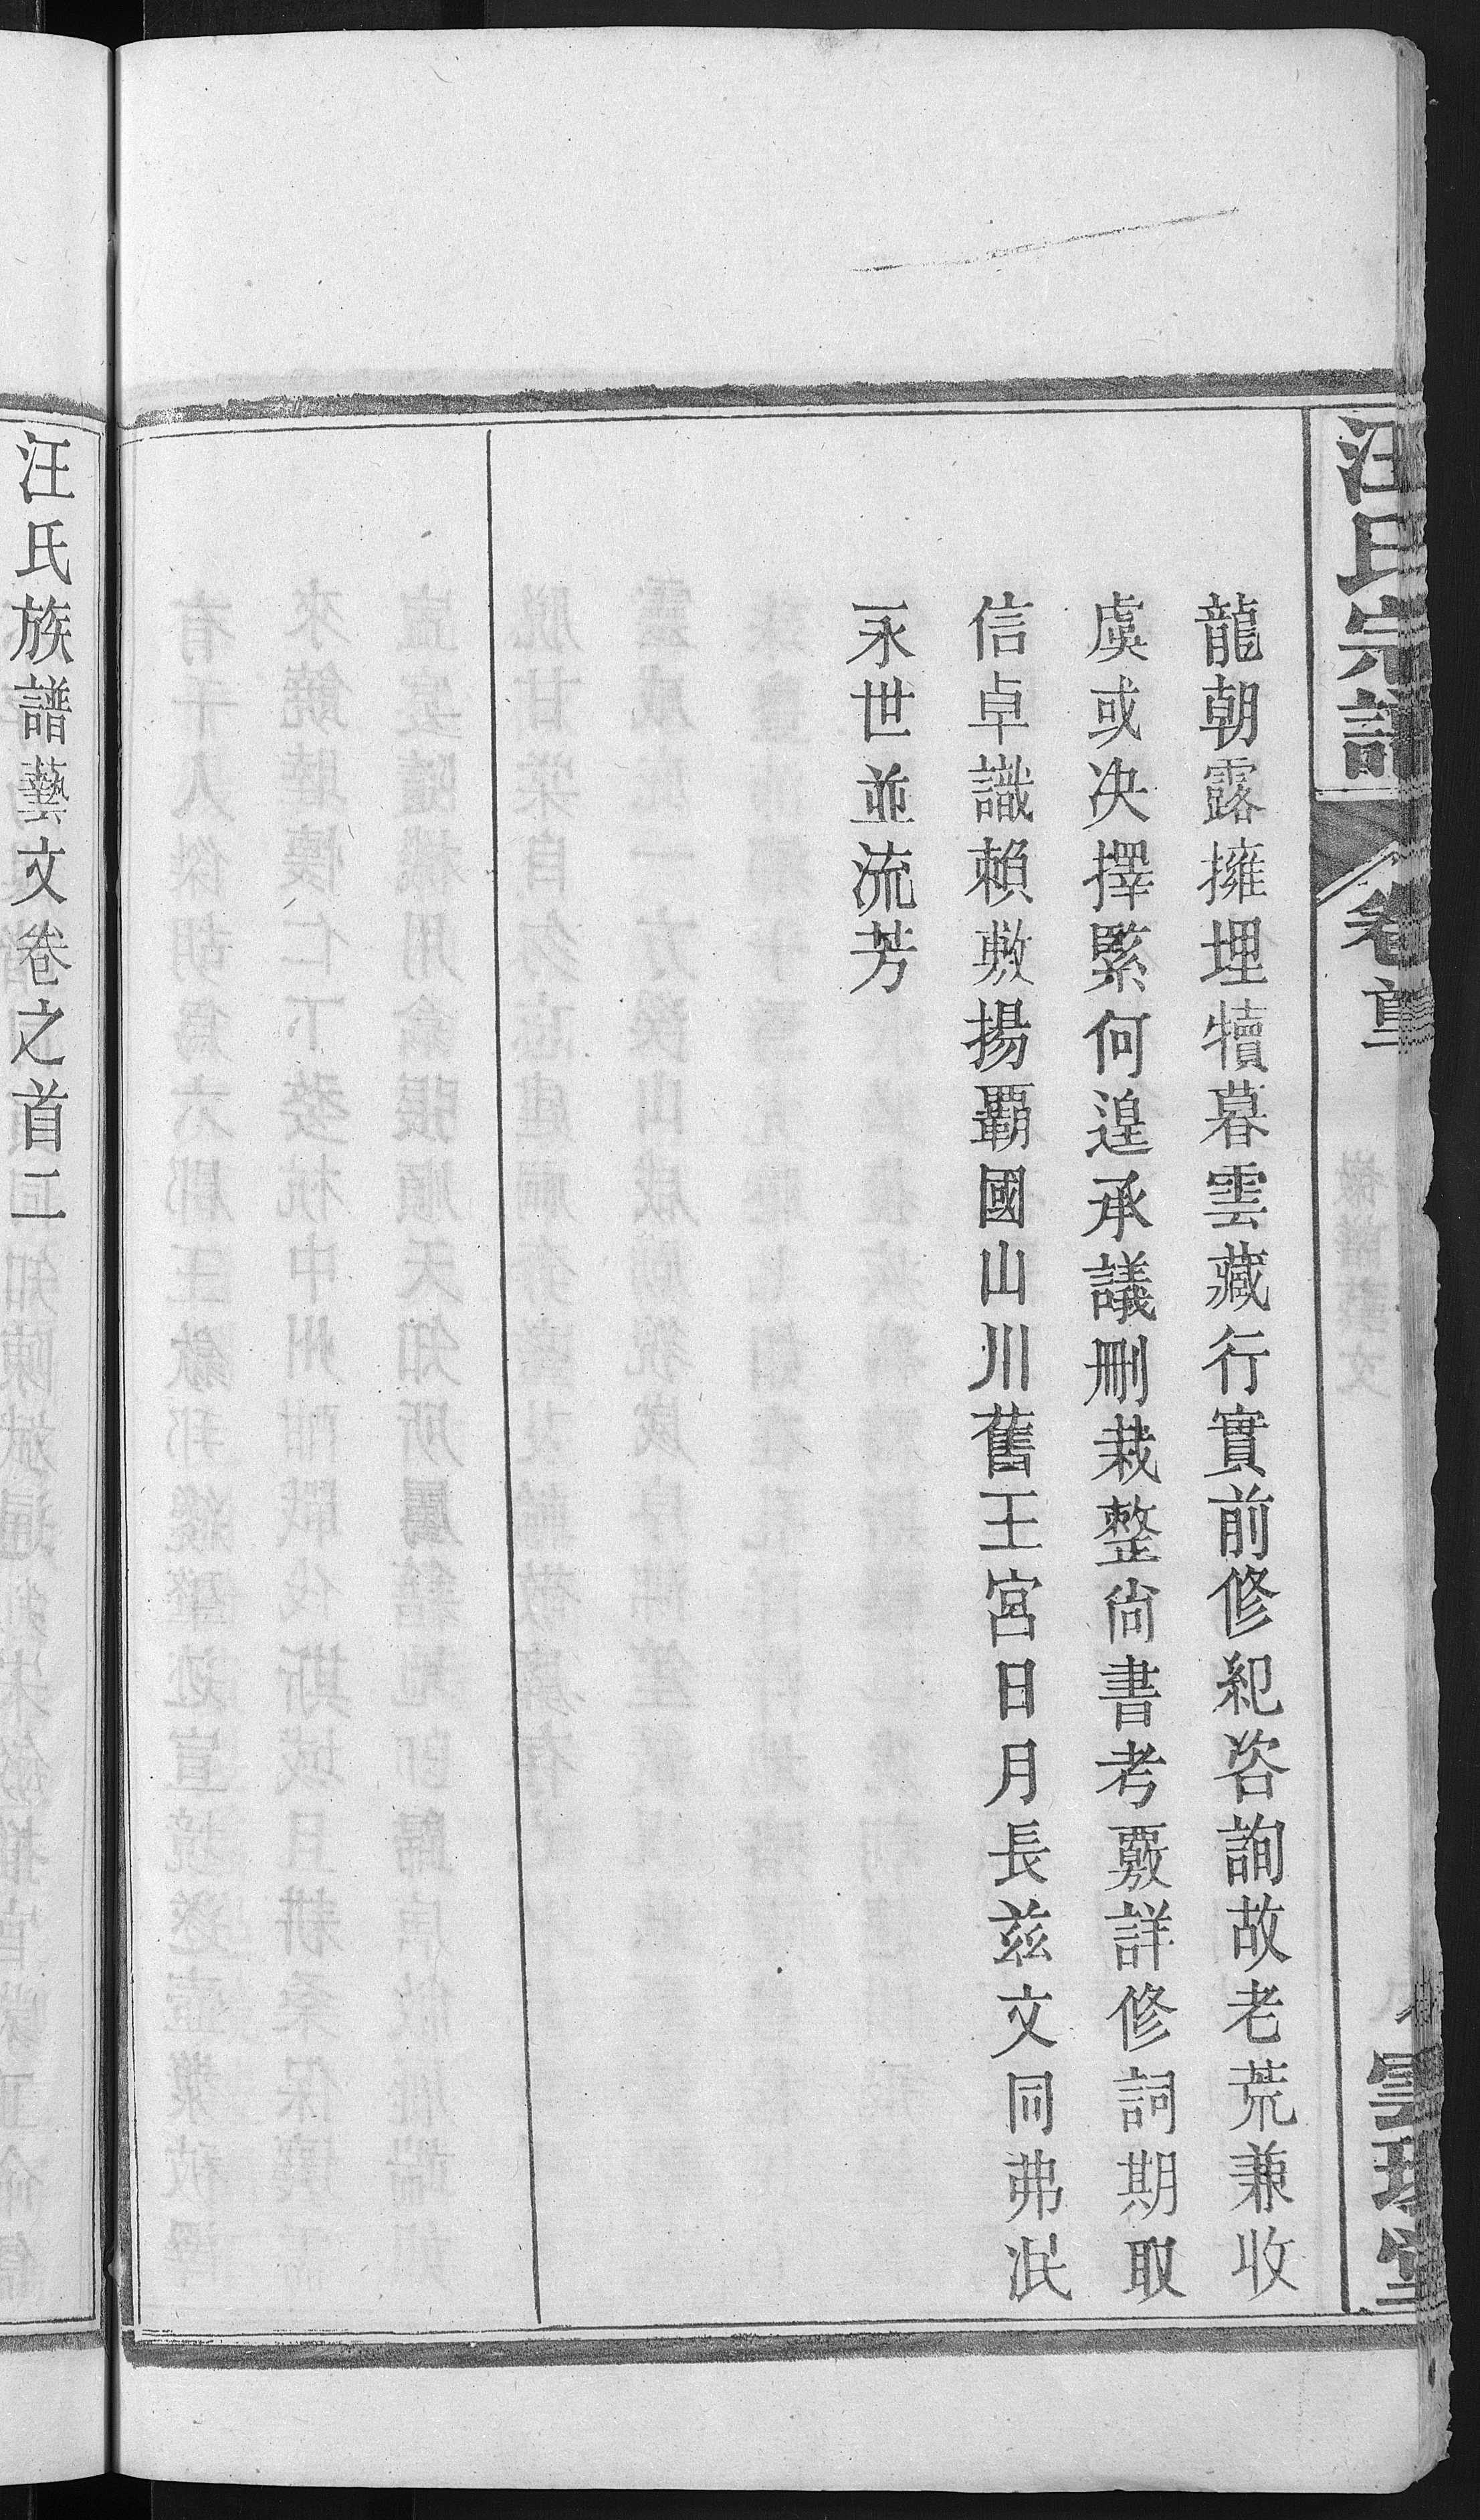 汪氏宗譜
卷首
龍朝露擁埋犢暮雲藏行實前修紀咨詢故老荒兼收
虞或決擇緊何遑承議刪裁整尙書考覈詳修詞期取
信卓識賴敷揚覇國山川舊王宮日月長茲文同弗泯
永世並流芳
汪氏族譜藝文卷之首二